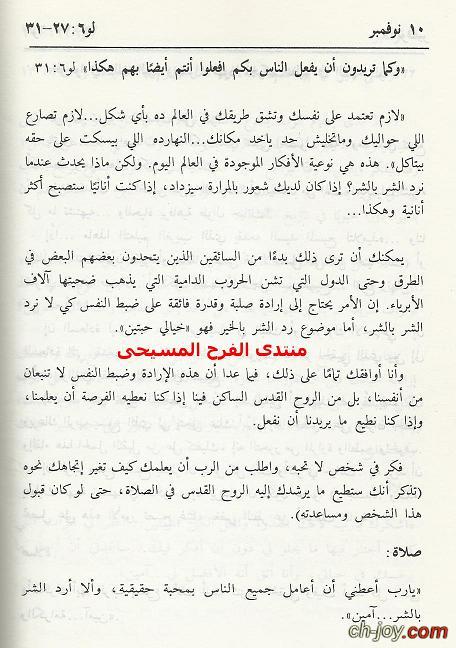 ١٠ نوفمبر لو٦:٢٧-٣١
«وكما تريدون أن يفعل الناس بكم افعلوا أنتم أيضًا بهم هكذا» لو٦:٣١
«لازم تعتمد على نفسك وتشق طريقك في العالم ده بأي شكل...لازم تصارع
اللي حواليك وماتخليش حد ياخد مكانك...النهارده اللي بيسكت على حقه
بيتاكل». هذه هي نوعية الأفكار الموجودة في العالم اليوم. ولكن ماذا يحدث عندما
نرد الشر بالشر؟ إذا كان لديك شعور بالمرارة سيزداد، إذا كنت أنانيًا ستصبح أكثر
أنانية وهكذا...
يمكنك أن ترى ذلك بدءًا من السائقين الذين يتحدون بعضهم البعض في
الطرق وحتى الدول التي تشن الحروب الدامية التي يذهب ضحيتها آلاف
الأبرياء. إن الأمر يحتاج إلى إرادة صلبة وقدرة فائقة على ضبط النفس كي لا نرد
الشر بالشر، أما موضوع رد الشر بالخير فهو «خيالي حبتين».
منتدى الفرح المسيحى
وأنا أوافقك تمامًا على ذلك، فيما عدا أن هذه الإرادة وضبط النفس لا تنبعان
من أنفسنا، بل من الروح القدس الساكن فينا إذا كنا نعطيه الفرصة أن يعلمنا،
وإذا كنا نطيع ما يريدنا أن نفعل.
فكر في شخص لا تحبه، واطلب من الرب أن يعلمك كيف تغير إتجاهك نحوه
(تذكر أنك ستطيع ما يرشدك إليه الروح القدس في الصلاة، حتى لو كان قبول
هذا الشخص ومساعدته).
صلاة:
«يارب أعطني أن أعامل جميع الناس بمحبة حقيقية، وألا أرد الشر
بالشر...آمين».
ch-joy.com